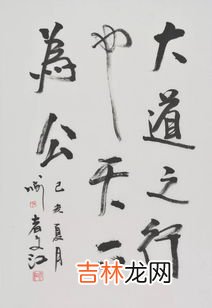 大道之行
也天下
為公
己亥夏月
吉林龙网